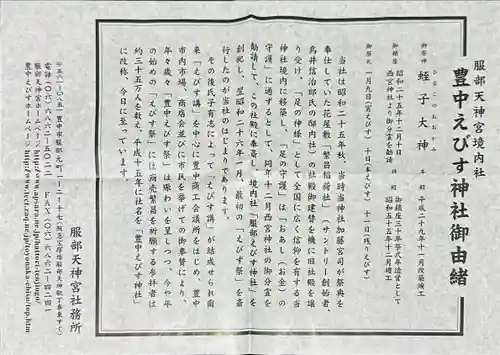 服部天神宮境内社
豊中えびす神社御由緒
御祭神 蛭子大神 本殿 平成二十九年十一月改築竣工
ひるこのおおかみ
御鎮座 昭和二十五年十二月十日 拝殿 御鎮座三十年祭式年造営として
西宮神社より御分霊を勧請 昭和五十五年十二月竣工
御祭礼 一月九日(宵えびす) 十日(本えびす) 十一日(残りえびす)
当社は昭和二十五年秋、当時当神社加藤宮司が祭典を
奉仕していた花屋敷「繁昌稲荷社」(サントリー創始者、
鳥井信治郎氏の邸内社)の社殿御建替を機に旧社殿を譲
り受け、「足の神様」として全国に広く信仰を有する当
神社境内に移築し、「足の守護」は「おあし(お金)の
守護」に通ずるとして、同年十二月西宮神社の御分霊を
勧請して、この社殿に奉斎し、境内社「服部えびす神社」を
創祀し、翌昭和二十六年一月、最初の「えびす祭」を斎
行したのが当社のはじまりであります。
その後氏子有志によって「えびす講」が結成せられ爾
来「えびす講」を中心に豊中商工会議所をはじめ、豊中
市内市場、商店会並びに市民を挙げての御奉賛により、
年々歳々「豊中えびす祭」は賑わいを呈しつつ、今や年
の始めの「えびす祭」には商売繁昌を祈願する参拝者は
約三十五万人を数え、平成十五年に社名を「豊中えびす神社」
に改称、今日に至っています。
服部天神宮社務所
〒五六一-〇八五一 豊中市服部元町一-二-十七(阪急宝塚線服部天神駅下車東すぐ)
電話(〇六)六八六二-五〇二二 FAX(〇六)六八六二-四二四一
服部天神宮ホームページ
豊中えびすホームページ